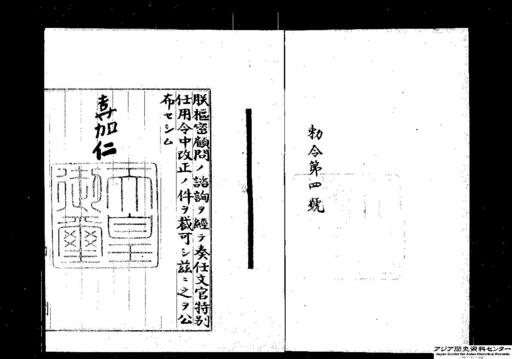 勅令第四號
朕樞密顧問ノ諮詢ヲ經テ奏任文官特別
任用令中改正ノ件ヲ裁可シ茲ニ之ヲ公
布セシム
嘉仁
天皇
御璽
アジア歴史資料センター
Japan Center for Asian Historical Records